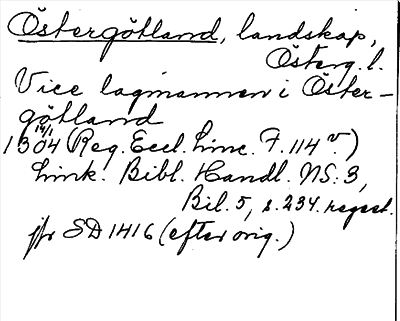 Östergötland, landskap,
Österg. l.
Vice lagmannen i Öster-
götland
1304 14/1 (Reg. Eccl. Linc. F. 114 v)
Link. Bibl. Handl. NS: 3,
Bil. 5, s. 234. regest.
jfr SD 1416 (efter orig.)